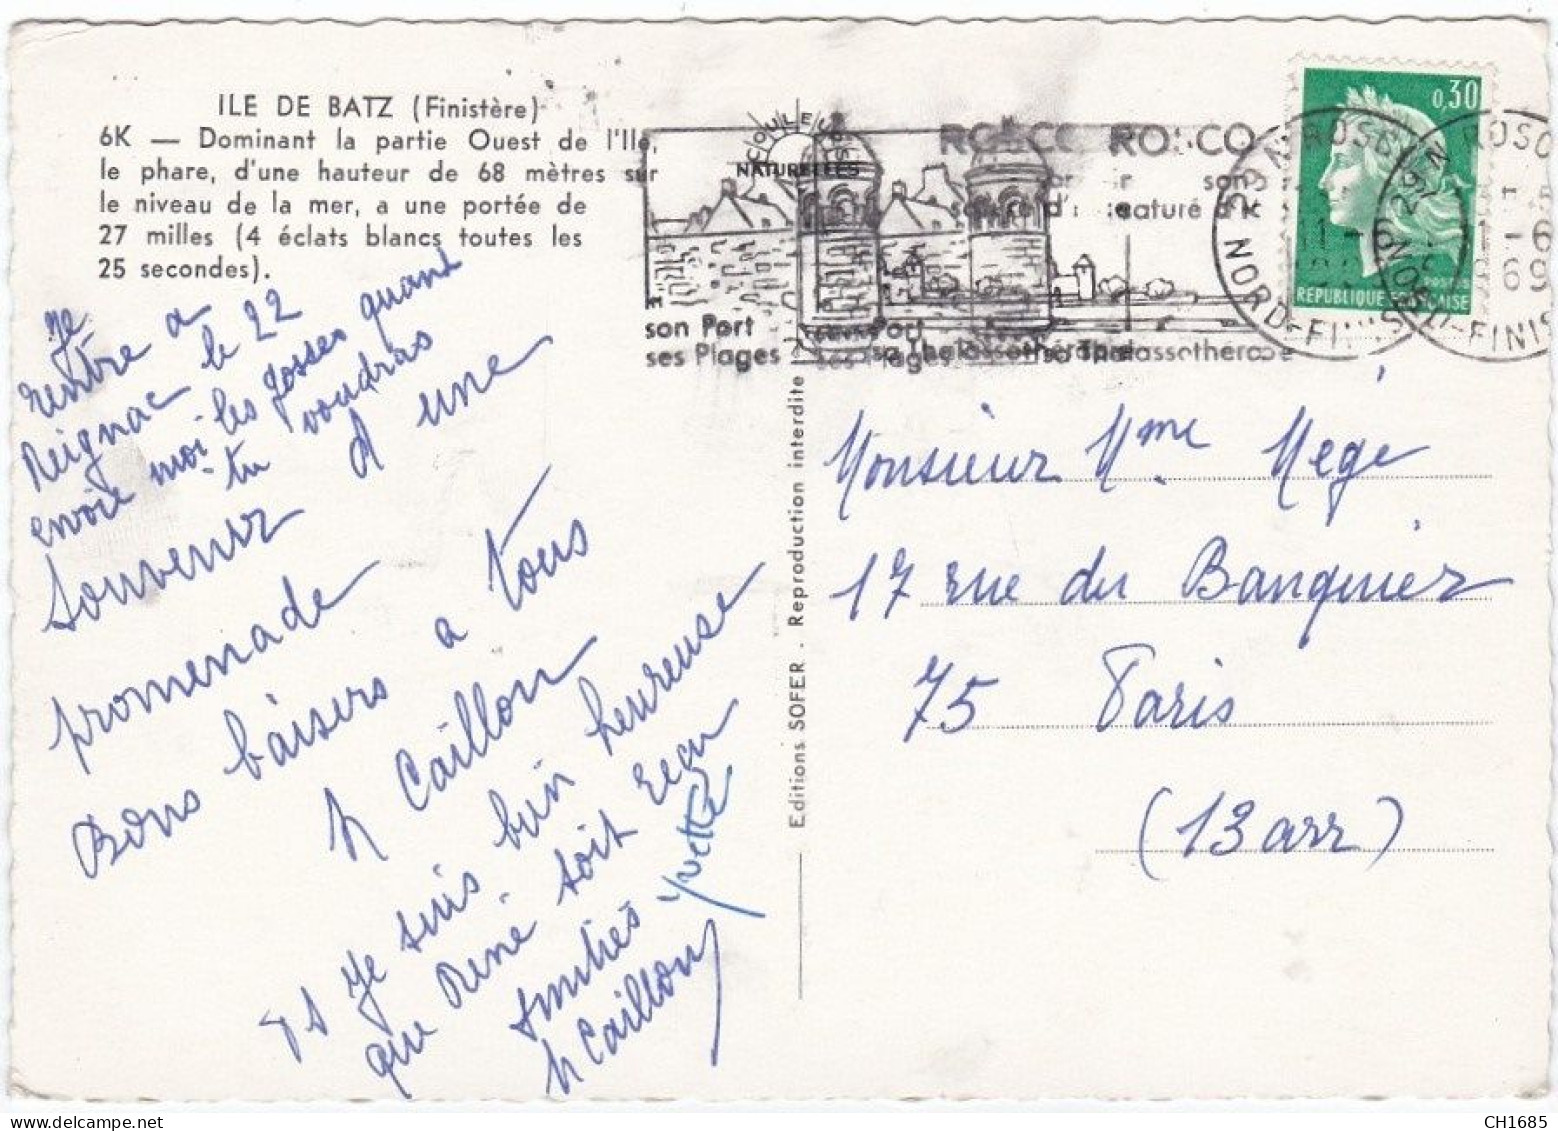 ILE DE BATZ (Finistère)
6K — Dominant la partie Ouest de l'Ile,
le phare, d'une hauteur de 68 mètres sur
le niveau de la mer, a une portée de
27 milles (4 éclats blancs toutes les
25 secondes).
Je
rentre a
Reignac le 22
envoie moi les gosses quant
tu voudras
Souvenir d une
promenade
Bons baisers a tous
h Caillon
PS Je suis bien heureuse
que René soit recu
Amitiés Yvette
h Caillon
Editions SOFER . Reproduction interdite
COULEURS
NATURELLES
son Port
ses Plages
son Port
ses Plages
sa Thalassothérapie
ROSCO
ROSCO
29 N ROSCO
NORD-FINIS
29 N ROSCO
NORD-FINIS
-6
69
0,30
REPUBLIQUE FRANÇAISE
Monsieur Mme Megé
17 rue du Banquier
75 Paris
(13 arr)
CH1685